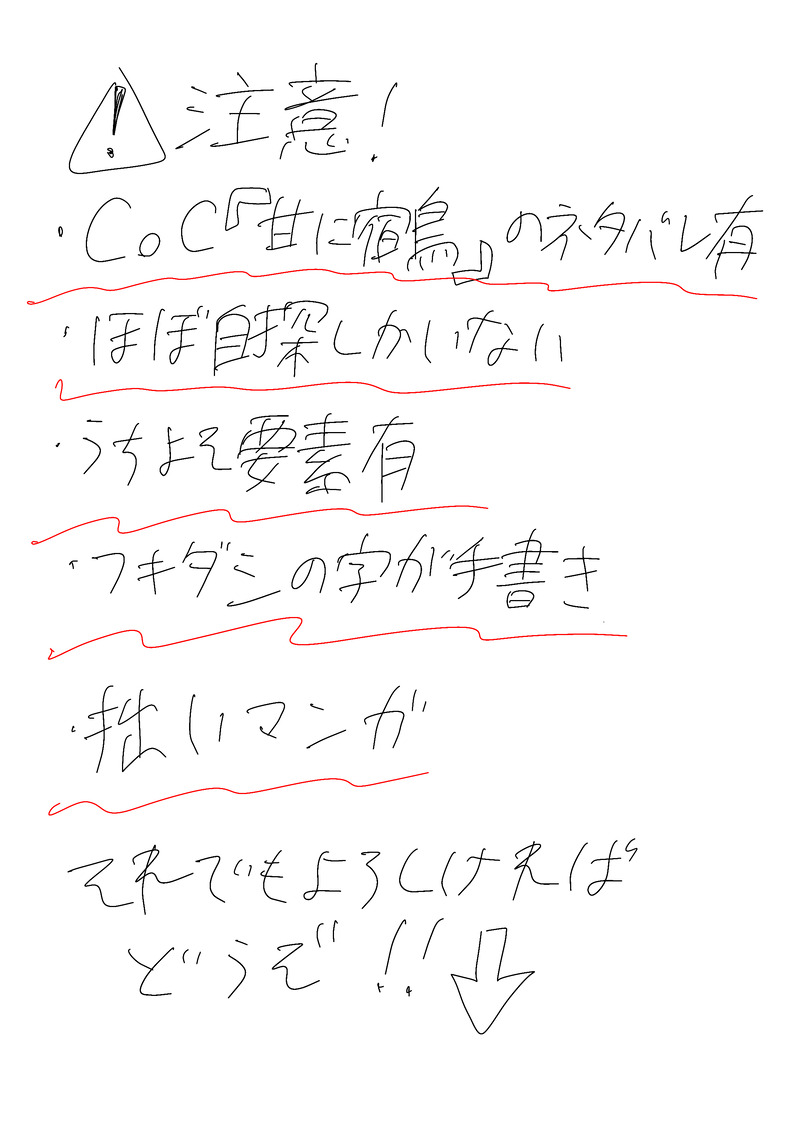 ⚠注意!
・CoC『甘に宿鳥』のネタバレ有
・ほぼ自探しかいない
・うちよそ要素有
・フキダシの字が手書き
・拙いマンガ
それでもよろしければ
どうぞ!!⇩